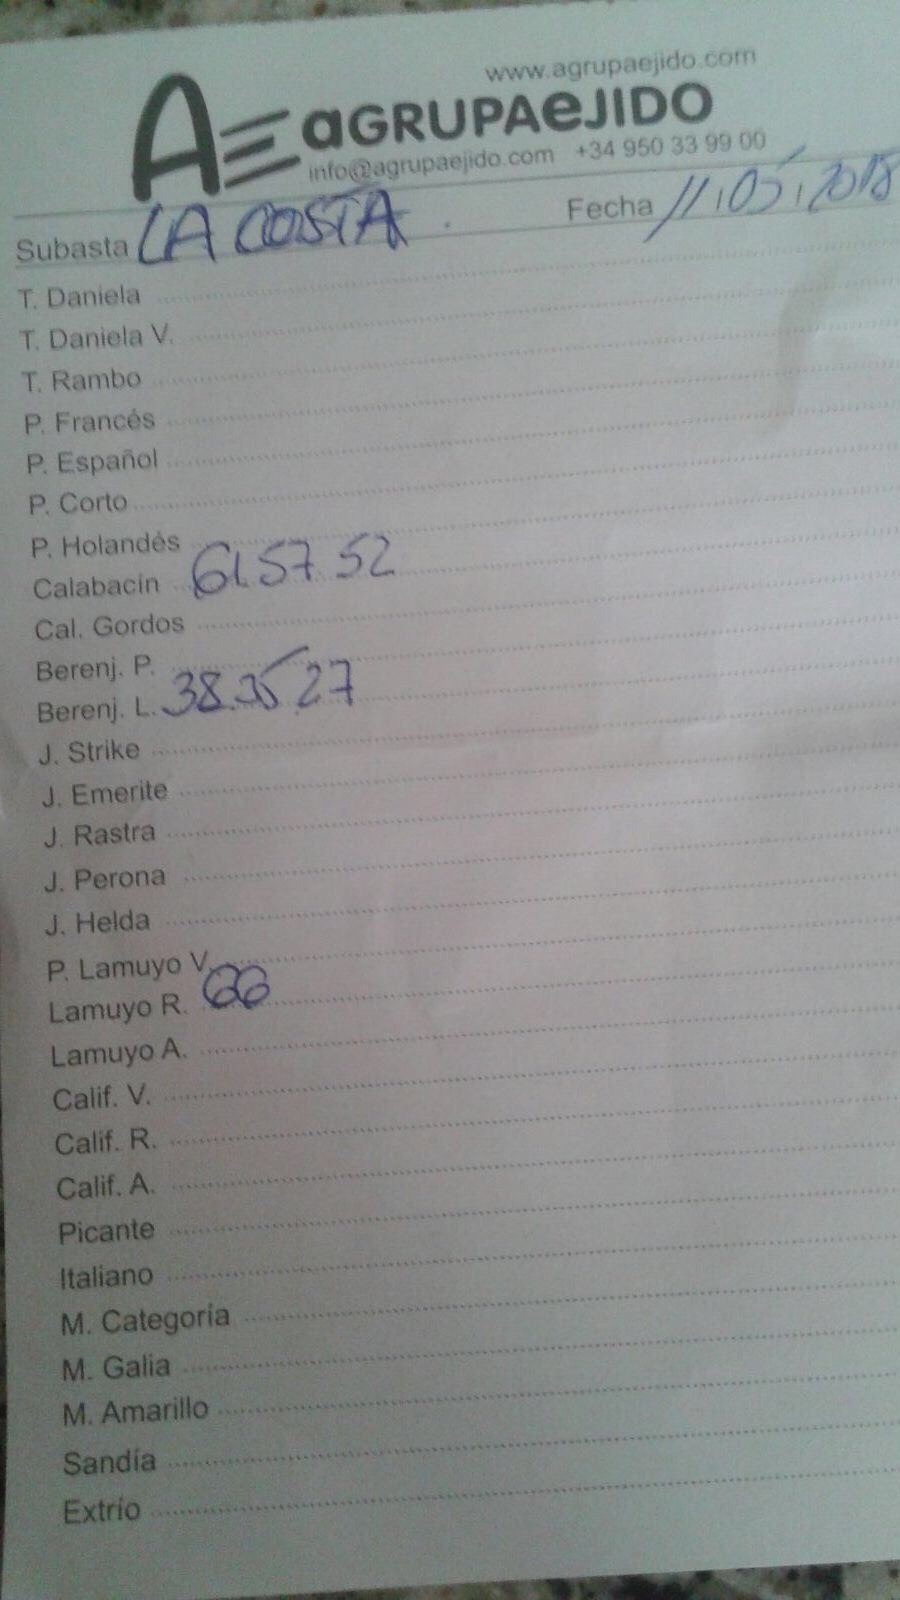 www.agrupaejido.com
AE aGRUPAeJIDO
info@agrupaejido.com +34 950 33 99 00
Subasta LA COSTA. Fecha 11.05.2018
T. Daniela
T. Daniela V.
T. Rambo
P. Francés
P. Español
P. Corto
P. Holandés
Calabacín 61.57.52
Cal. Gordos
Berenj. P.
Berenj. L. 38.35.27
J. Strike
J. Emerite
J. Rastra
J. Perona
J. Helda
P. Lamuyo V.
Lamuyo R. 66
Lamuyo A.
Calif. V.
Calif. R.
Calif. A.
Picante
Italiano
M. Categoría
M. Galia
M. Amarillo
Sandía
Extrío